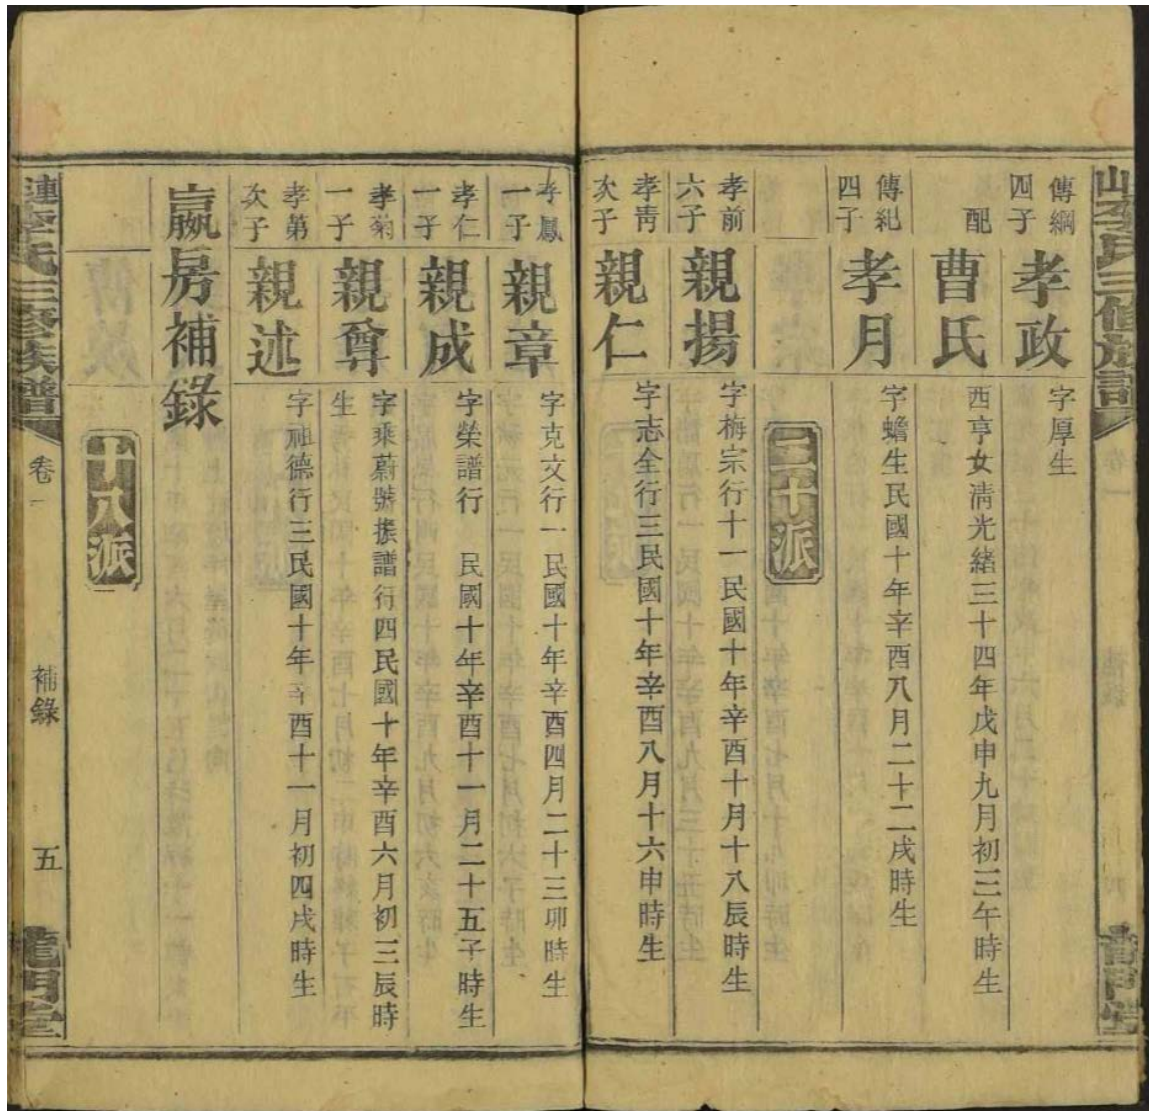 傳綱四子
孝政
字厚生
配
曹氏
西亨女淸光緒三十四年戊申九月初三午時生
傳紀四子
孝月
字蟾生民國十年辛酉八月二十二戌時生
三十派
孝前六子
親揚
字梅宗行十一民國十年辛酉十月十八辰時生
孝靑次子
親仁
字志全行三民國十年辛酉八月十六申時生
孝鳳一子
親章
字克文行一民國十年辛酉四月二十三卯時生
孝仁一子
親成
字榮譜行 民國十年辛酉十一月二十五子時生
孝菊一子
親尊
字乘蔚號振譜行四民國十年辛酉六月初三辰時
生
孝第次子
親述
字祖德行三民國十年辛酉十一月初四戌時生
嬴房補錄
廿八派
漣李氏三修族譜
卷一
補錄
五
龍門堂